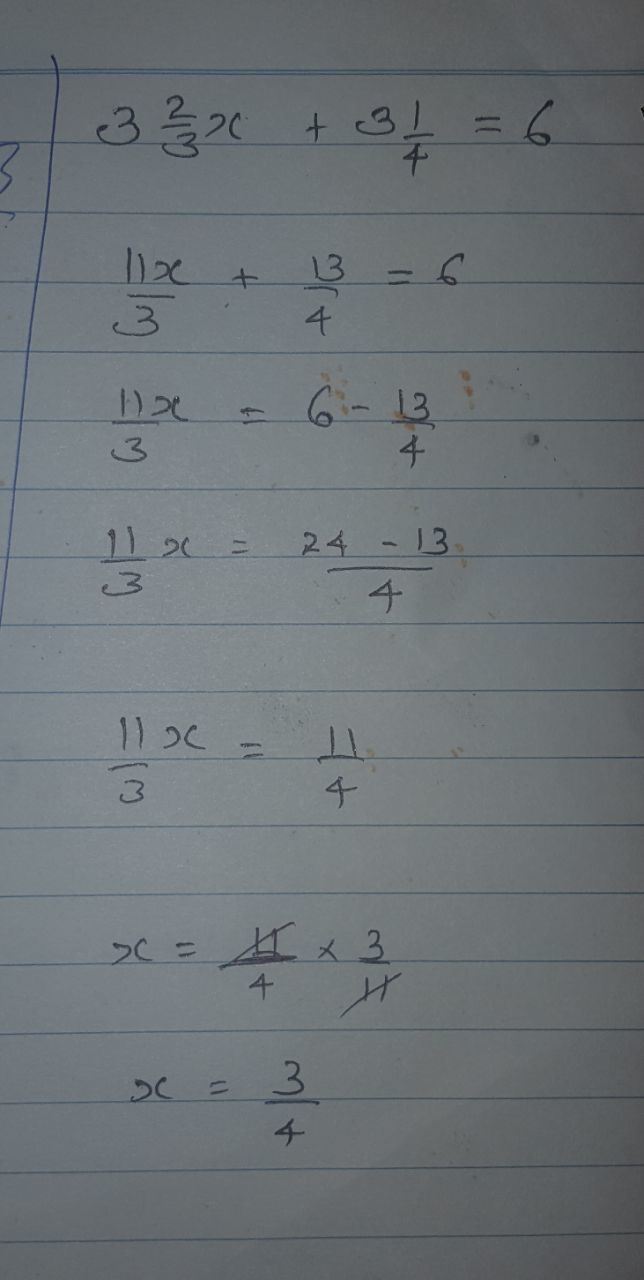 3 2/3 x + 3 1/4 = 6
11x/3 + 13/4 = 6
11x/3 = 6 - 13/4
11/3 x = 24 - 13/4
11/3 x = 11/4
x = 11/4 × 3/11
x = 3/4